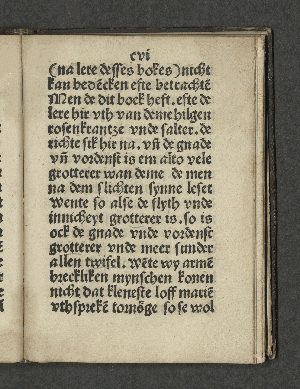 cvi
(na lere desses bokes) nicht
kan bedēcken efte betrachtē
Men de dit bock heft. efte de
lere hir vth van deme hilgen
rosenkrantze vnde salter. de
richte sik hir na. vñ de gnade
vñ vordenst is em alto vele
grotterer wan deme de men
na dem slichten synne leset
Wente so alse de flyth vnde
innicheyt grotterer is. so is
ock de gnade vnde vordenst
grotterer vnde meer sunder
allen twifel. Wēte wy armē
breckliken mynschen konen
nicht dat kleneste loff mariē
vthsprekē tomöge so se wol